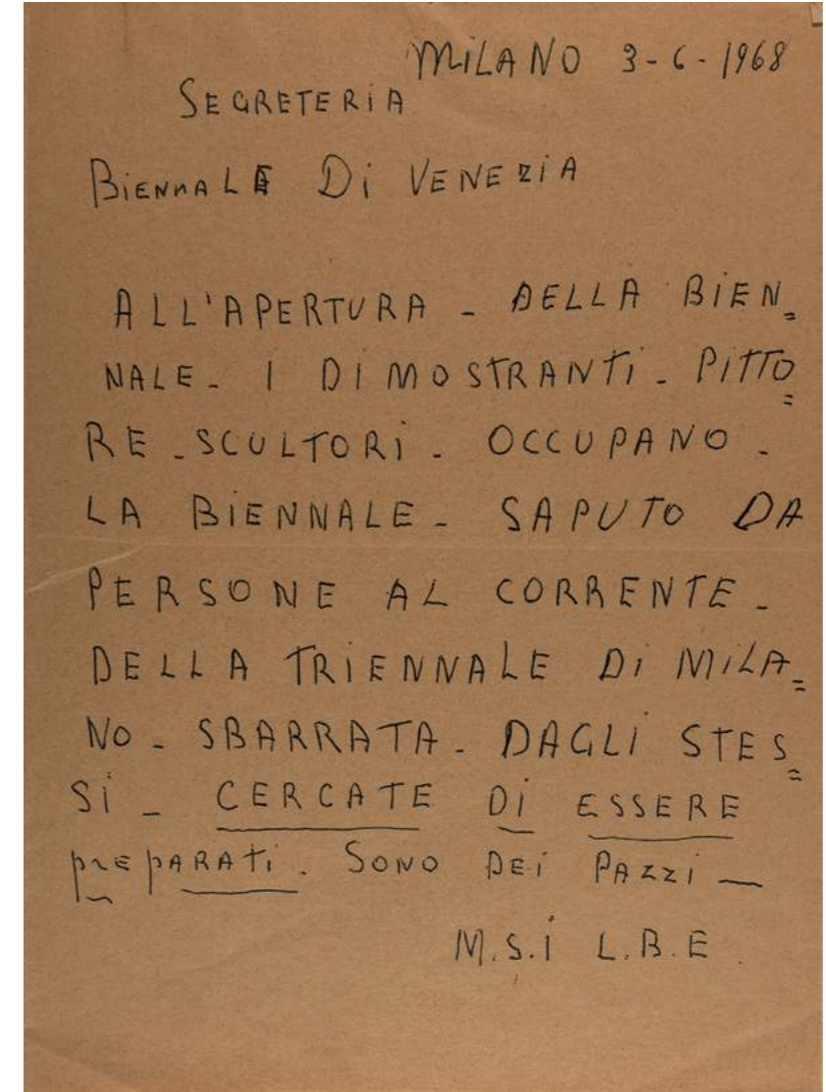 MILANO 3-6-1968
SEGRETERIA
BIENNALE DI VENEZIA
ALL'APERTURA - DELLA BIEN=
NALE - I DIMOSTRANTI - PITTO=
RE - SCULTORI - OCCUPANO -
LA BIENNALE - SAPUTO DA
PERSONE AL CORRENTE -
DELLA TRIENNALE DI MILA=
NO - SBARRATA - DAGLI STES=
SI - CERCATE DI ESSERE
prepARAti - SONO DEI PAZZI -
M.S.I L.B.E.